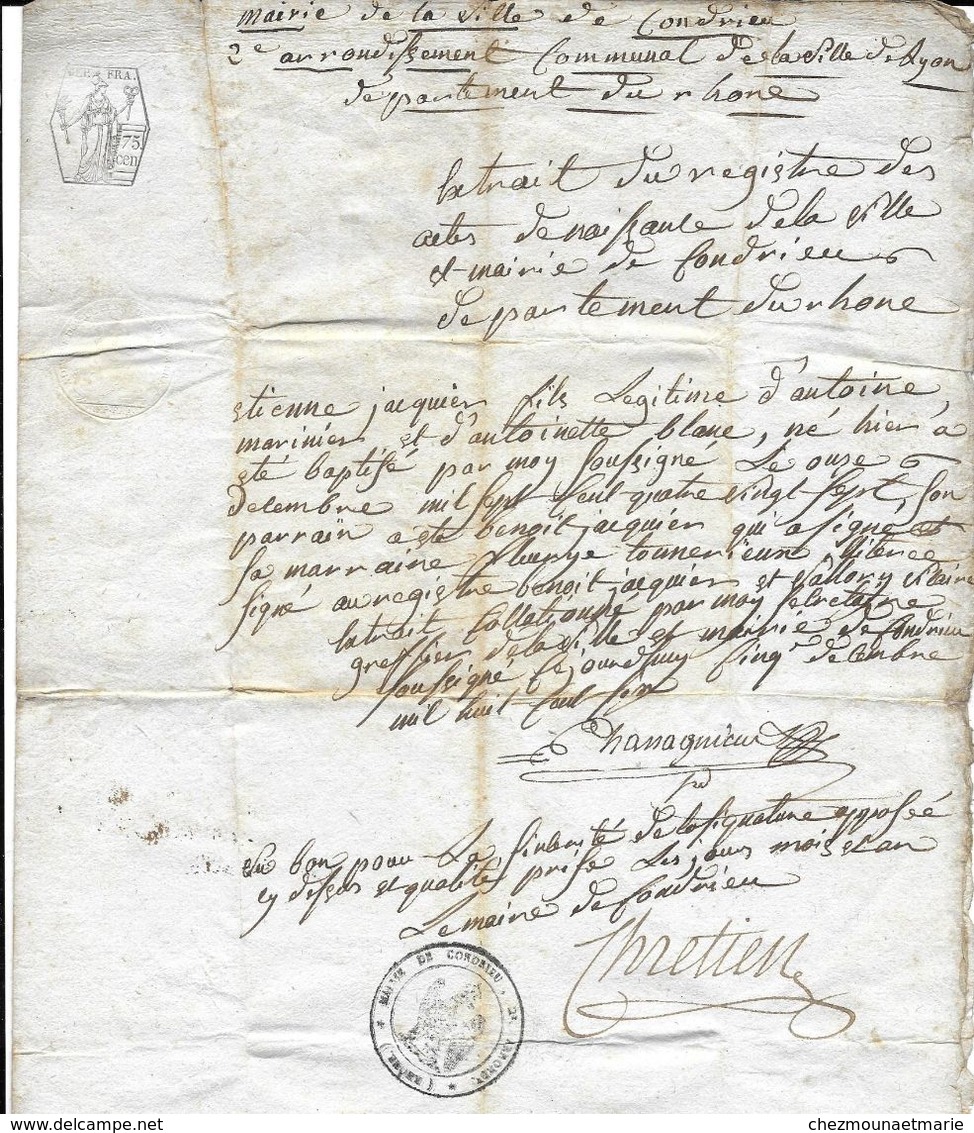 mairie de la ville de Condrieu
2e arrondissement Communal de la ville de Lyon
departement du rhone
REP. FRA.
75
cen
Extrait du registre des
actes de naissance de la ville
et mairie de Condrieu
departement du rhone
Etienne jacquier fils Legitime d'antoine,
marinier, et d'antoinette blanc, né hier à
eté baptisé par moy soussigné Le onze
decembre mil sept cent quatre vingt sept, son
parrain a eté benoit jacquier qui a signé et
sa marraine
signé au registre benoit jacquier et vallory vicaire
Extrait Collationné par moy secretaire
greffier de la ville et mairie de Condrieu
soussigné cejourd'huy cinq decembre
mil huit cent six
Chanagnieu
vu bon pour La sincerité de la signature apposée
cy dessus et qualité prise Les jours mois et an
Le maire de Condrieu
Chretien
* MAIRIE DE CONDRIEU, 2e ARRONDt * (RHÔNE)
chezmounaetmarie